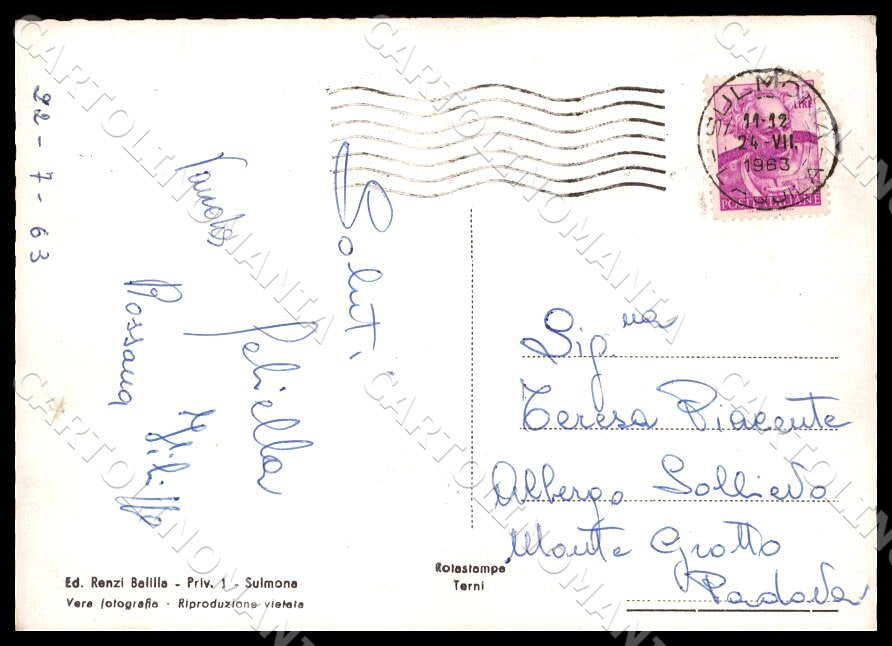 22-7-63
Saluti
Rossana
SULMONA
11-12
24-VII.
1963
L'AQUILA
LIRE
POSTE ITALIANE
Sig.na
Teresa Piacente
Albergo Sollievo
Monte Grotto
Padova
Ed. Renzi Balilla - Priv. 1 - Sulmona
Vera fotografia - Riproduzione vietata
Rotastampa
Terni
CARTOLINOMANIA